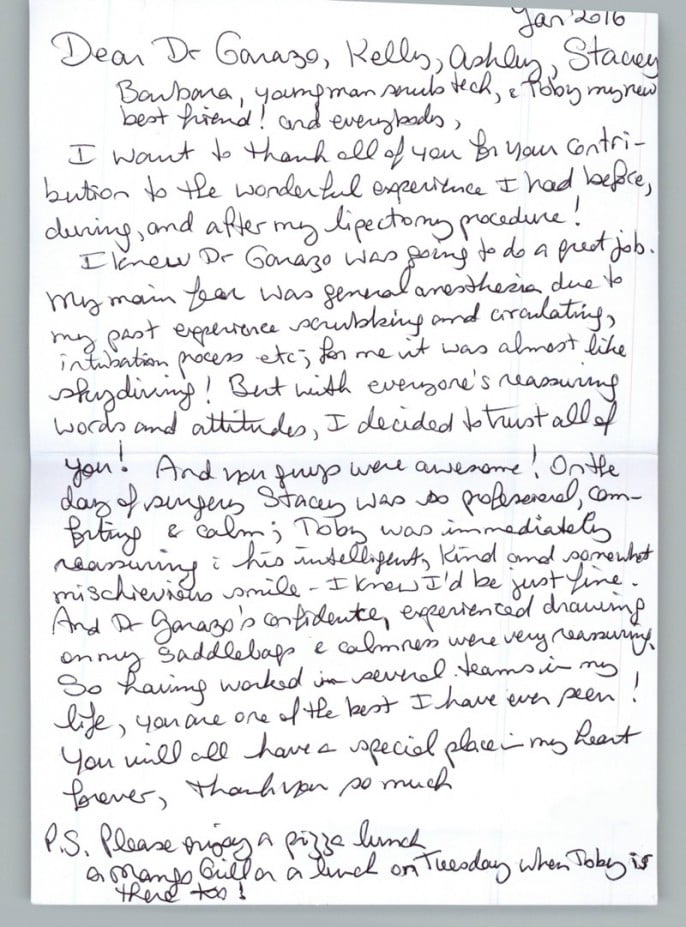 Jan' 2016
Dear Dr Garazo, Kelly, Ashley, Stacey
Barbara, young man scrub tech, & Toby my new
best friend! and everybody,
I want to thank all of you for your contri-
bution to the wonderful experience I had before,
during, and after my lipectomy procedure!
I knew Dr Garazo was going to do a great job.
My main fear was general anesthesia due to
my past experience scrubbing and circulating,
intubation process etc; for me it was almost like
skydiving! But with everyone's reassuring
words and attitudes, I decided to trust all of
you! And you guys were awesome! On the
day of surgery Stacey was so profesional, com-
forting & calm; Toby was immediately
reassuring: his intelligent, kind and somewhat
mischievious smile - I knew I'd be just fine.
And Dr Garazo's confidente, experienced drawing
on my saddlebags & calmness were very reassuring.
So having worked in several teams in my
life, you are one of the best I have ever seen!
You will all have a special place in my heart
forever, thank you so much
P.S. Please enjoy a pizza lunch
or Mango Grill or a lunch on Tuesday when Toby is
there too!